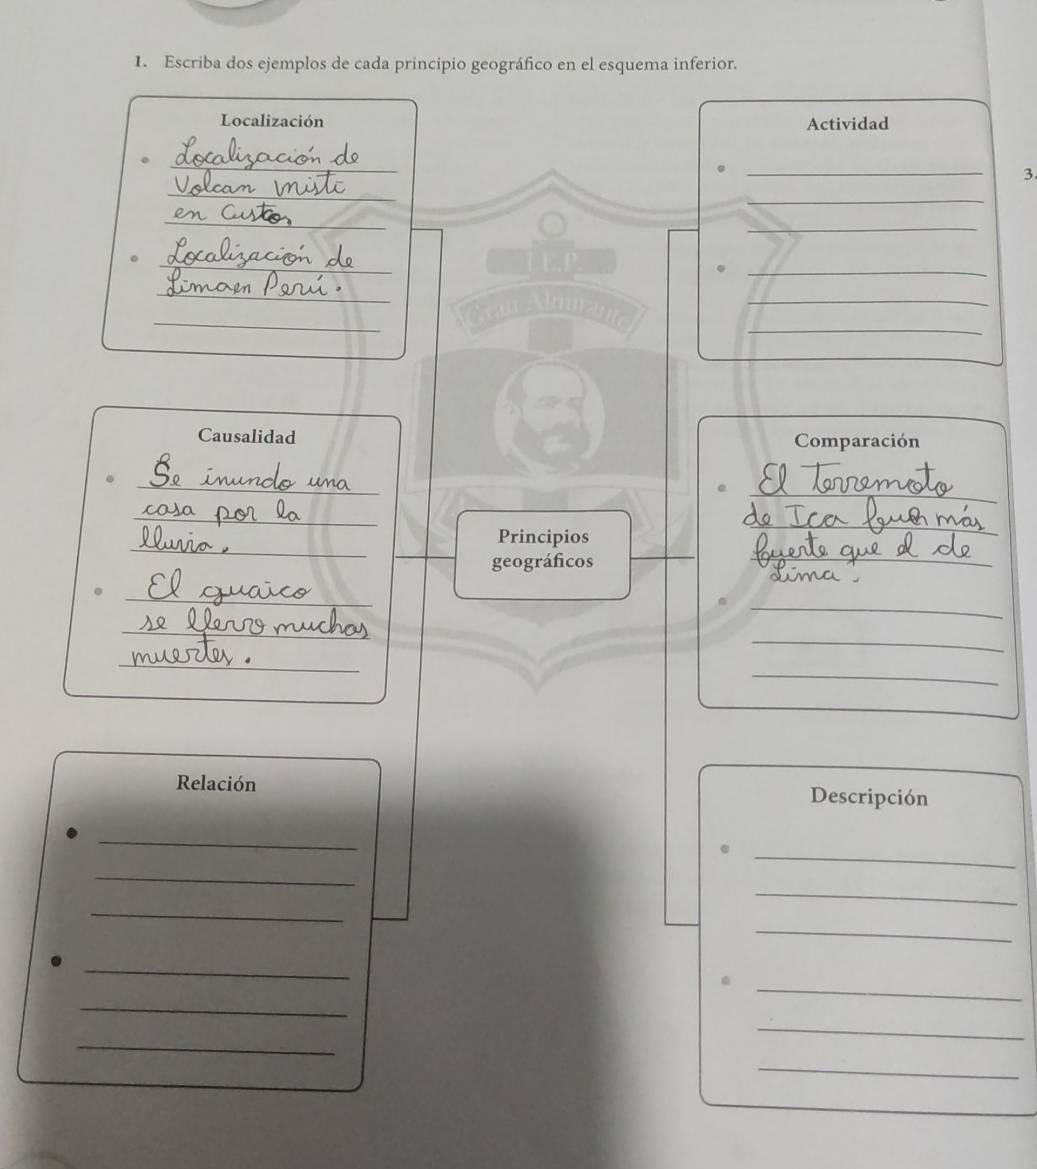 1. Escriba dos ejemplos de cada principio geográfico en el esquema inferior.
Localización
Localización de
Volcan misti
en Custo
Localización de
Lima en Perú.
Actividad
3.
I.E.P.
Gran Almirante
Causalidad
Se inundo una
casa por la
lluvia.
El guaico
se llevo muchas
muertes.
Principios
geográficos
Comparación
El Terremoto
de Ica fue más
fuerte que el de
Lima.
Relación
Descripción